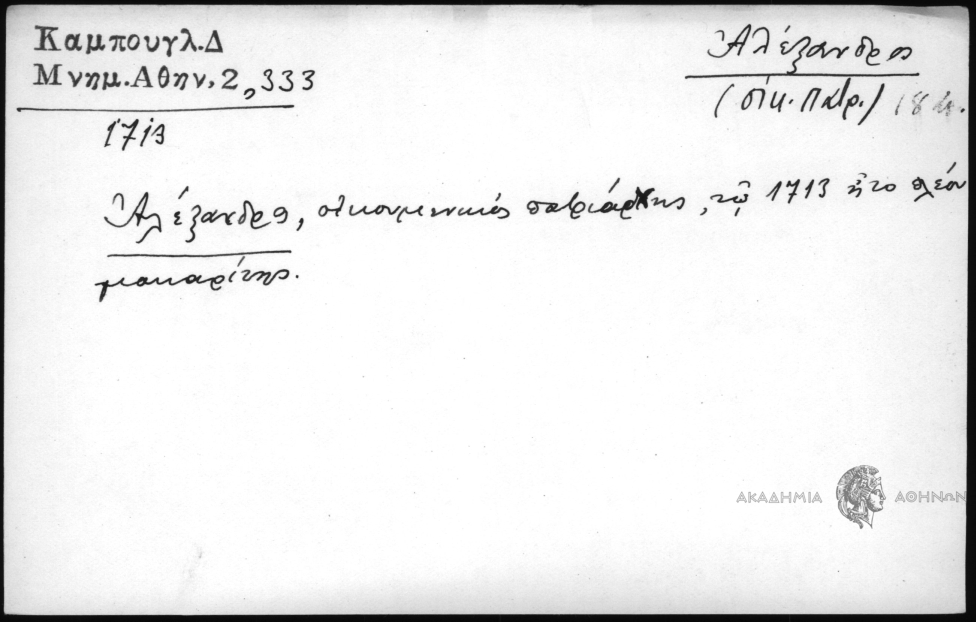 Καμπουγλ.Δ
Μνημ.Αθην.2,333
1713
Ἀλέξανδρος
(οἰκ. Πατρ.) 18
Ἀλέξανδρος, οἰκουμενικός πατριάρχης, τῷ 1713 ἦτο πλέον
μακαρίτης.
ΑΚΑΔΗΜΙΑ ΑΘΗΝΩΝ